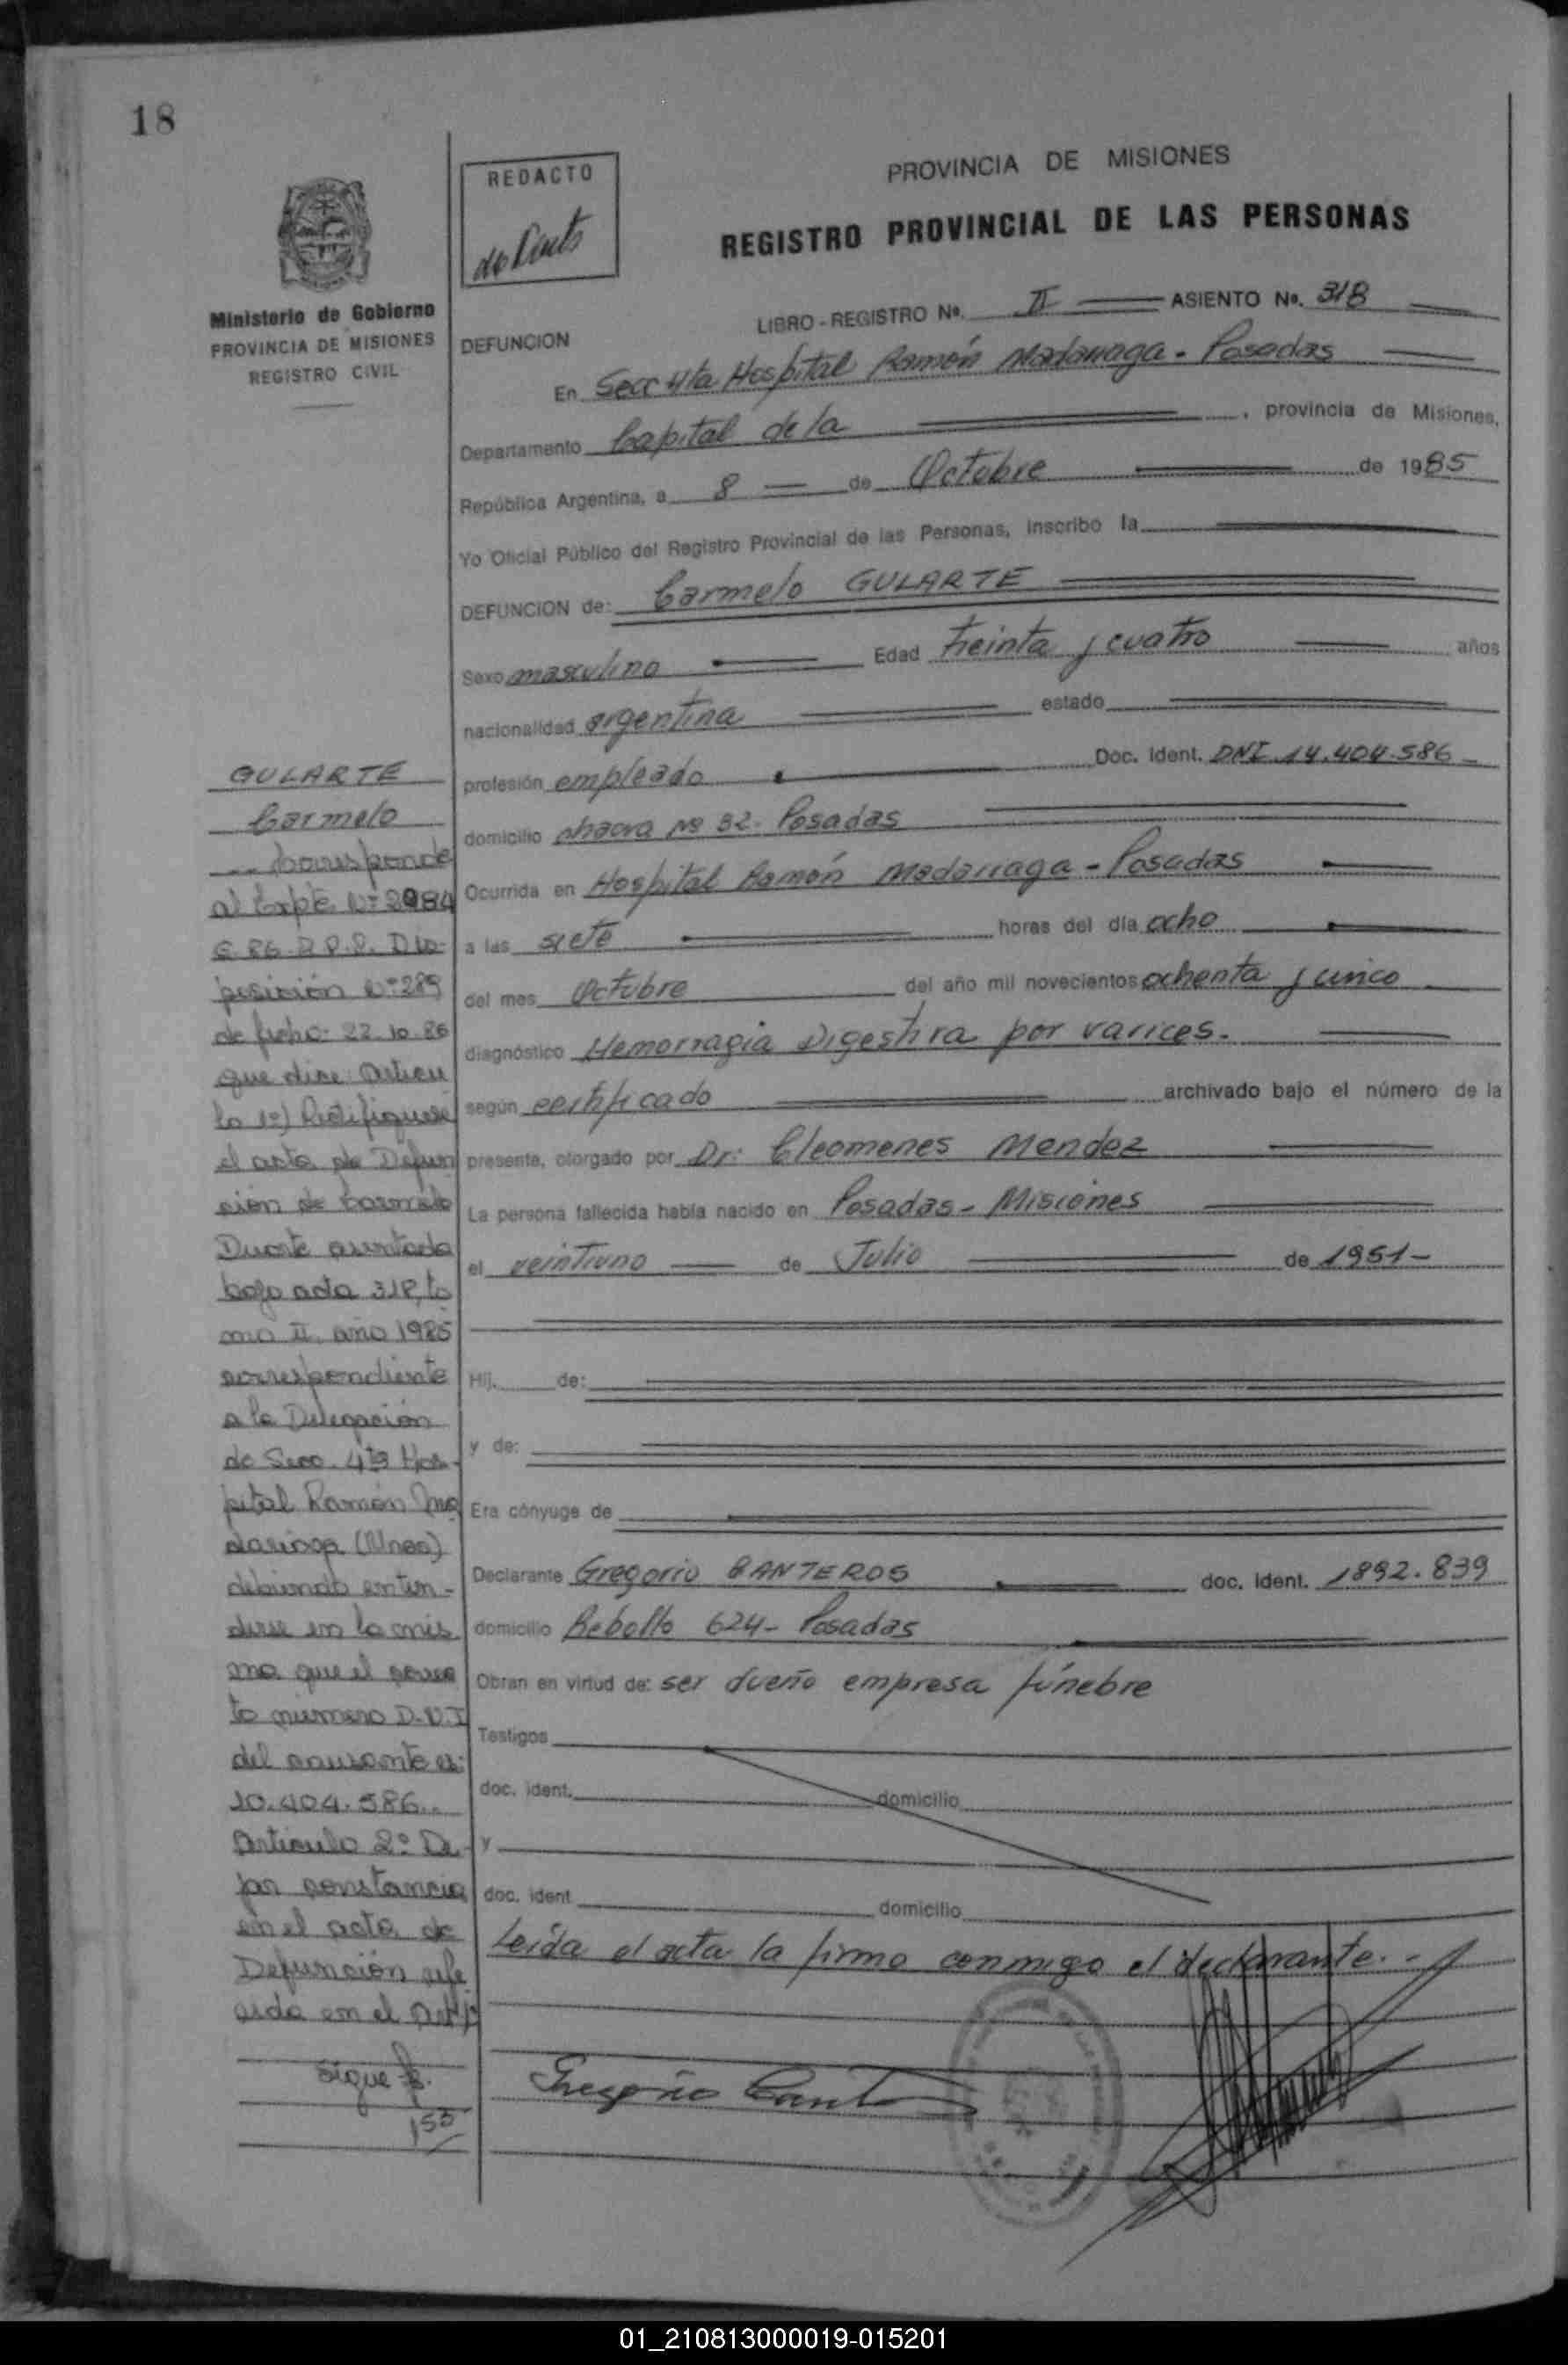 18
REDACTO
PROVINCIA DE MISIONES
REGISTRO PROVINCIAL DE LAS PERSONAS
Ministerio de Gobierno
PROVINCIA DE MISIONES
REGISTRO CIVIL
DEFUNCION
LIBRO-REGISTRO Nº. II ASIENTO Nº. 318
En Secc 4ta Hospital Ramón Madariaga - Posadas
Departamento Capital de la , provincia de Misiones,
República Argentina, a 8 de Octubre de 1985
Yo Oficial Público del Registro Provincial de las Personas, inscribo la
DEFUNCION de: Carmelo GULARTE
Sexo masculino Edad treinta y cuatro años
nacionalidad argentina estado
profesión empleado Doc. Ident. DNI 14.404.586
domicilio chacra Nº 32 - Posadas
Ocurrida en Hospital Ramón Madarriaga - Posadas
a las siete horas del día ocho
del mes Octubre del año mil novecientos ochenta y cinco
diagnóstico Hemorragia Digestiva por varices.
según certificado archivado bajo el número de la
presente, otorgado por Dr: Cleomenes Mendez
La persona fallecida había nacido en Posadas - Misiones
el veintiuno de Julio de 1951-
Hij. de:
y de:
Era cónyuge de
Declarante Gregorio CANTEROS doc. ident. 1892.839
domicilio Rebollo 624 - Posadas
Obran en virtud de: ser dueño empresa fúnebre
Testigos
doc. ident. domicilio
y
doc. ident domicilio
Leída el acta la firma conmigo el declarante. -
GULARTE
Carmelo
Corresponde
al Expte Nº 2984
G. 86. R.P.P. Dis-
posición Nº 289
de fecha: 22.10.86
que dice: Articu
lo 1º) Rectifiquese
el acta de Defun
ción de Carmelo
Duarte asentada
bajo acta 318, to
mo II, año 1985
correspondiente
a la Delegación
de Secc. 4ta Hos-
pital Ramón Ma
dariaga (Mnes)
debiendo enten-
derse en la mis
ma que el correc
to número D.N.I
del causante es:
10.404.586..
Articulo 2º De
jar constancia
en el acta de
Defunción refe
rida en el Art
sigue f.
153
Gregorio Cant
01_210813000019-015201